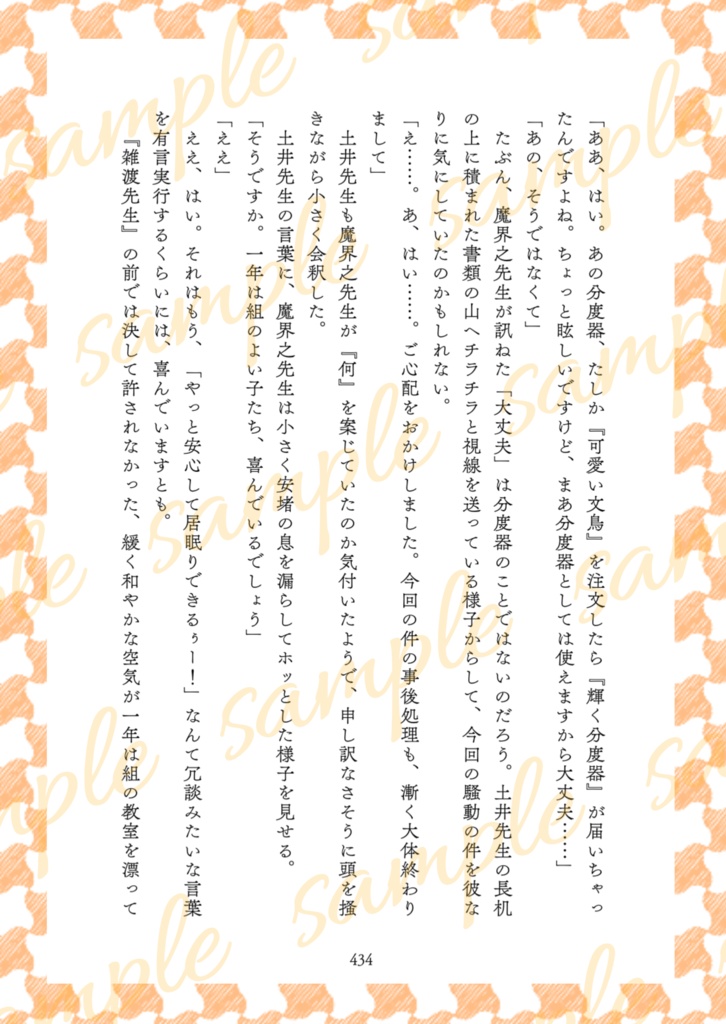 「ああ、はい。あの分度器、たしか『可愛い文鳥』を注文したら『輝く分度器』が届いちゃっ
たんですよね。ちょっと眩しいですけど、まあ分度器としては使えますから大丈夫……」
「あの、そうではなくて」
たぶん、魔界之先生が訊ねた「大丈夫」は分度器のことではないのだろう。土井先生の長机
の上に積まれた書類の山へチラチラと視線を送っている様子からして、今回の騒動の件を彼な
りに気にしていたのかもしれない。
「え……。あ、はい……。ご心配をおかけしました。今回の件の事後処理も、漸く大体終わり
まして」
土井先生も魔界之先生が『何』を案じていたのか気付いたようで、申し訳なさそうに頭を掻
きながら小さく会釈した。
土井先生の言葉に、魔界之先生は小さく安堵の息を漏らしてホッとした様子を見せる。
「そうですか。一年は組のよい子たち、喜んでいるでしょう」
「ええ」
ええ、はい。それはもう、「やっと安心して居眠りできるぅー！」なんて冗談みたいな言葉
を有言実行するくらいには、喜んでいますとも。
『雑渡先生』の前では決して許されなかった、緩く和やかな空気が一年は組の教室を漂って
434
sample
sample
sample
sample
sample
sample
sample
sample
sample
sample